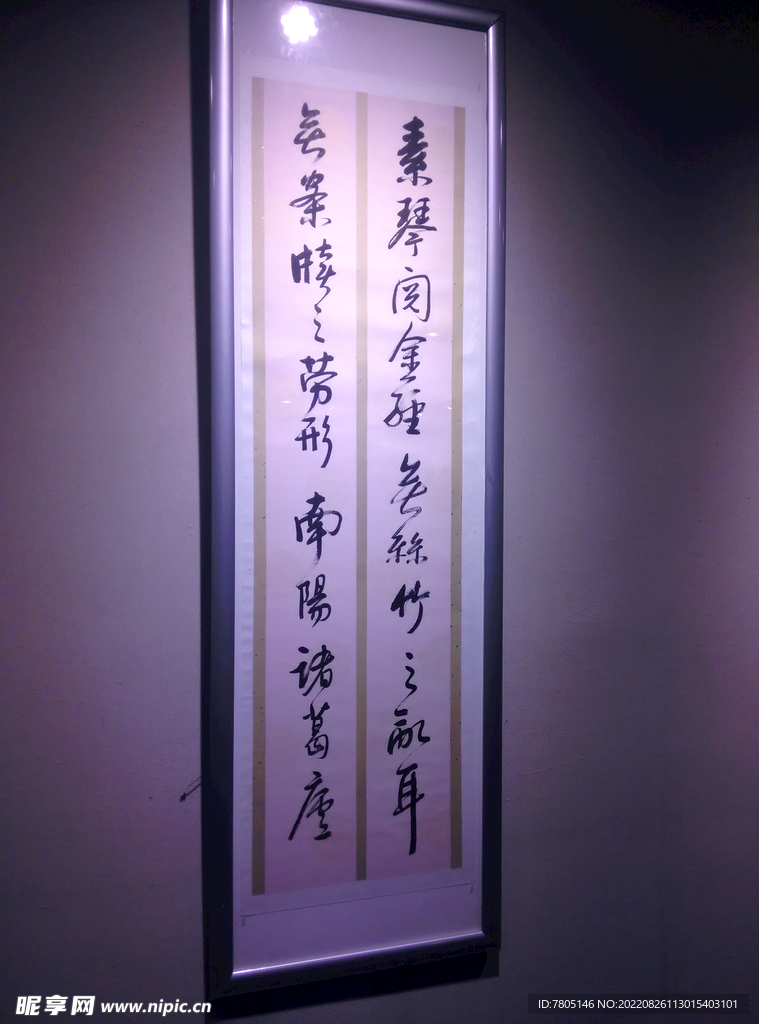 素琴阅金經無絲竹之亂耳
無案牘之劳形南陽諸葛廬
昵享网 www.nipic.cn
ID:7805146 NO:20220826113015403101